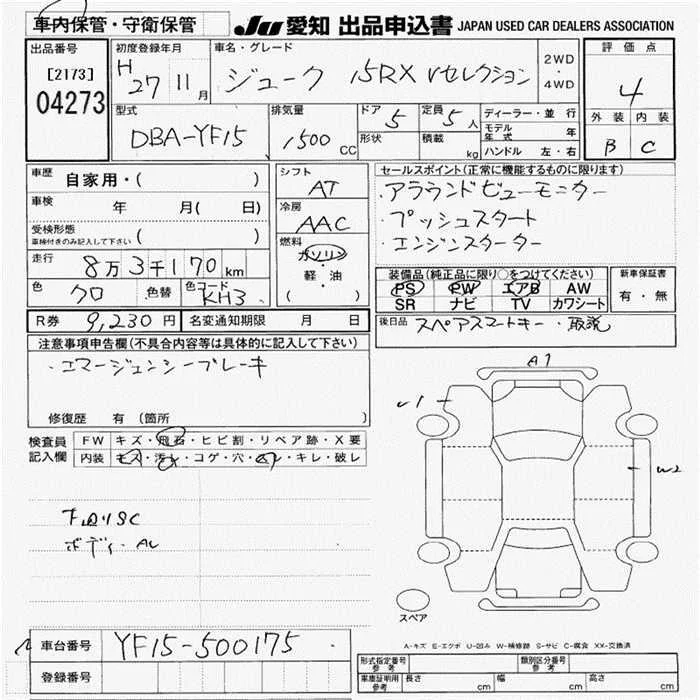 車内保管・守衛保管 JU 愛知 出品申込書 JAPAN USED CAR DEALERS ASSOCIATION
出品番号 初度登録年月 車名・グレード 評価点
[2173] H 27 11月 ジューク 15RX Vセレクション 2WD・4WD 4
04273 型式 排気量 ドア 5 定員 5人 ディーラー・並行 外装 内装
DBA-YF15 1500 CC 形状 積載 kg モデル年式 年 B C
ハンドル 左・右
車歴 自家用・( ) シフト AT セールスポイント(正常に機能するものに限ります)
車検 年 月( 日) 冷房 AAC ・アラウンドビューモニター
受検形態 ( ) ・プッシュスタート
車検付きのみ記入して下さい 燃料 ガソリン ・エンジンスターター
走行 8万3千170km 軽・油 装備品(純正品に限り○をつけてください) 新車保証書
色 クロ 色替 色コード KH3 ( ) PS PW エアB AW 有・無
SR ナビ TV カワシート
R券 9,230円 名変通知期限 月 日 後日品 スペアスマートキー・取説
注意事項申告欄(不具合内容等は具体的に記入して下さい)
・エマージェンシーブレーキ
A1
修復歴 有 (箇所 )
検査員 FW キズ・飛石・ヒビ割・リペア跡・X要
記入欄 内装 キズ・汚れ・コゲ・穴・スレ・キレ・破レ
W2
スペア
車台番号 YF15-500175
A-キズ E-エクボ U-凹み W-補修跡 S-サビ C-腐食 XX-交換済
登録番号 形式指定番号 参考 類別区分番号 参考
車庫証明用 参考 長さ cm 幅 cm 高さ cm